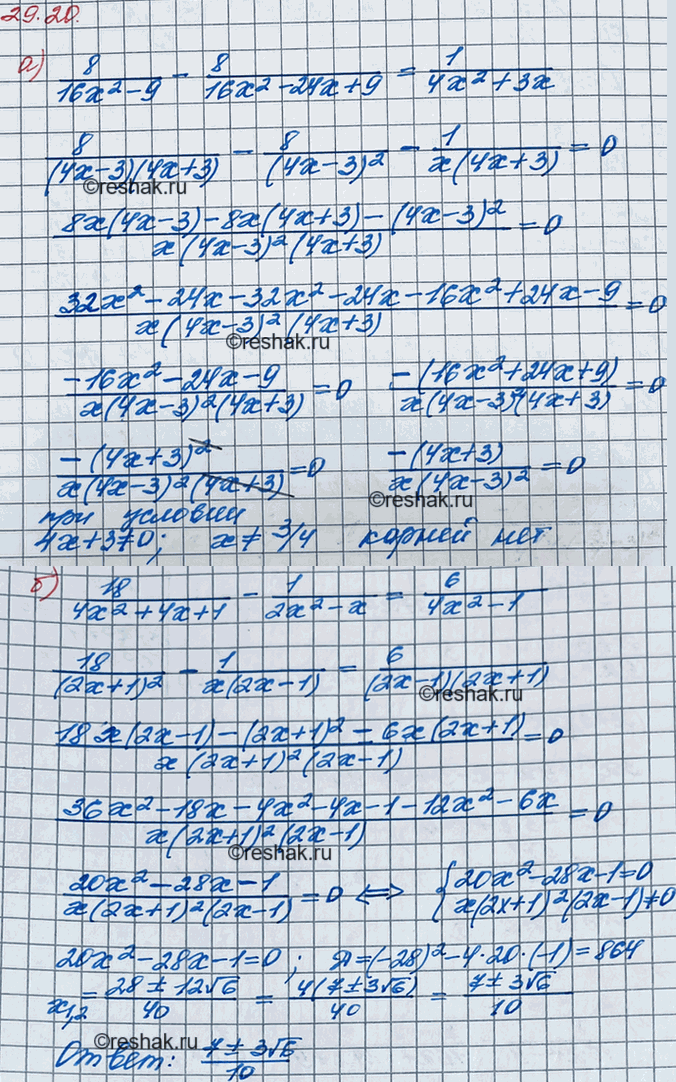 29.20.
а) 8/(16x²-9) - 8/(16x²-24x+9) = 1/(4x²+3x)
8/((4x-3)(4x+3)) - 8/(4x-3)² - 1/(x(4x+3)) = 0
©reshak.ru
(8x(4x-3)-8x(4x+3)-(4x-3)²)/(x(4x-3)²(4x+3)) = 0
(32x²-24x-32x²-24x-16x²+24x-9)/(x(4x-3)²(4x+3)) = 0
©reshak.ru
(-16x²-24x-9)/(x(4x-3)²(4x+3)) = 0   (-(16x²+24x+9))/(x(4x-3)²(4x+3)) = 0
(-(4x+3)²)/(x(4x-3)²(4x+3)) = 0   (-(4x+3))/(x(4x-3)²) = 0
©reshak.ru
при условии
4x+3≠0; x≠3/4 корней нет
б) 18/(4x²+4x+1) - 1/(2x²-x) = 6/(4x²-1)
18/(2x+1)² - 1/(x(2x-1)) = 6/((2x-1)(2x+1))
©reshak.ru
(18x(2x-1)-(2x+1)²-6x(2x+1))/(x(2x+1)²(2x-1)) = 0
(36x²-18x-4x²-4x-1-12x²-6x)/(x(2x+1)²(2x-1)) = 0
©reshak.ru
(20x²-28x-1)/(x(2x+1)²(2x-1)) = 0 ⇔ {20x²-28x-1=0
x(2x+1)²(2x-1)≠0
20x²-28x-1=0; Д=(-28)²-4·20·(-1)=864
x₁,₂ = (28±12√6)/40 = (4(7±3√6))/40 = (7±3√6)/10
©reshak.ru
Ответ: (7±3√6)/10